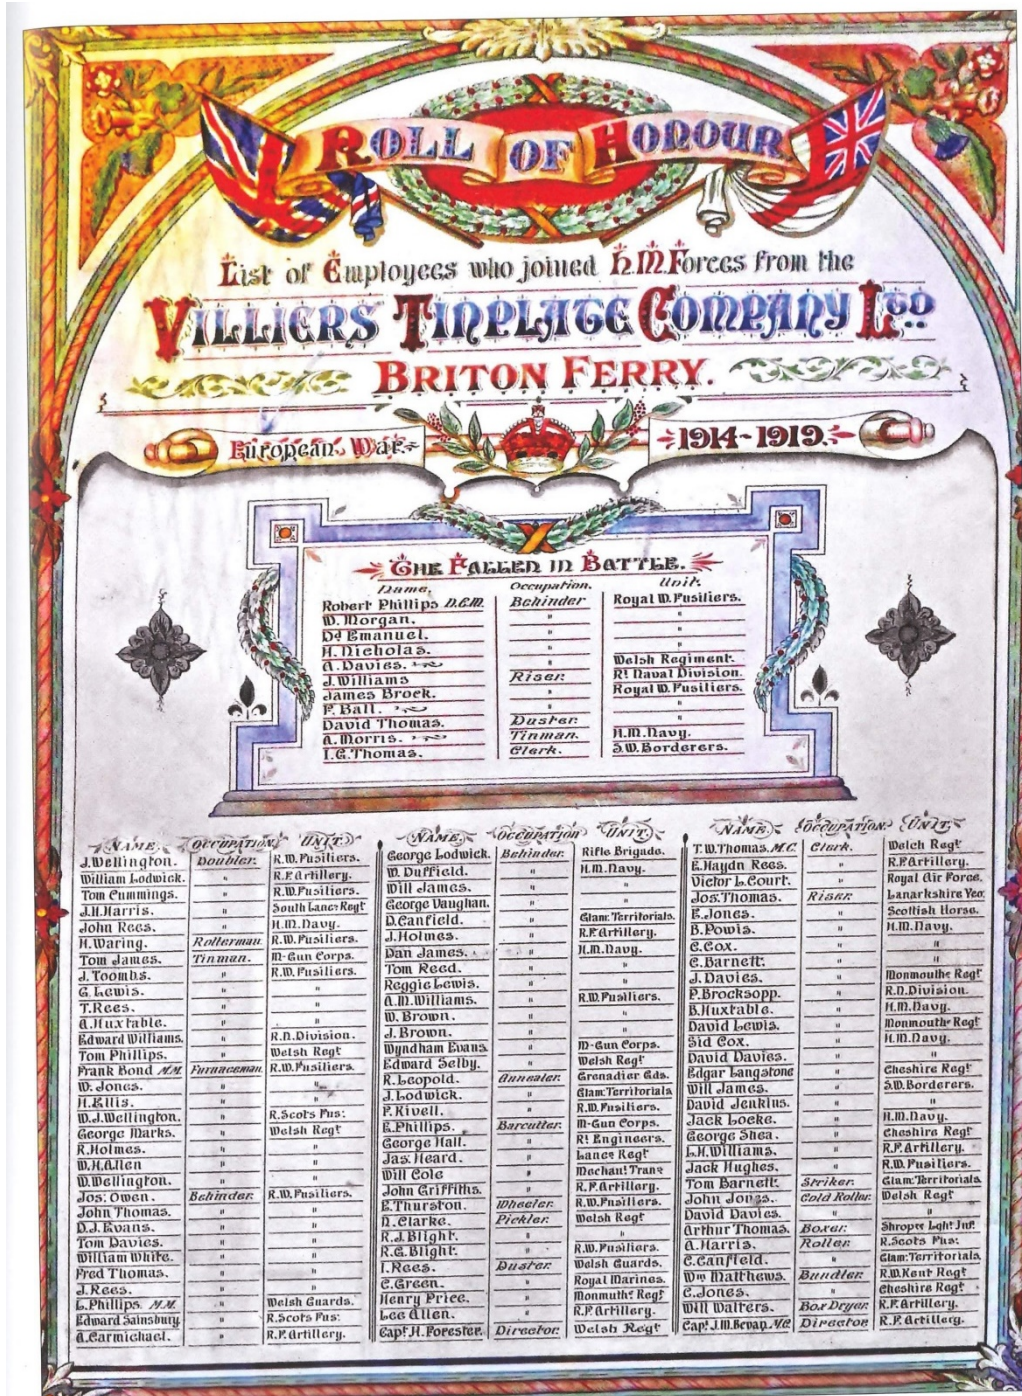 ROLL OF HONOUR
List of Employees who joined H.M.Forces from the
VILLIERS TINPLATE COMPANY LTD.
BRITON FERRY.
European War 1914-1919.
THE FALLEN IN BATTLE.
Name. Occupation. Unit.
Robert Phillips D.C.M. Behinder Royal W.Fusiliers.
W.Morgan. " "
Dd Emanuel. " "
H.Nicholas. " "
A.Davies. " Welsh Regiment.
J.Williams Riser. Rl Naval Division.
James Brock. " Royal W.Fusiliers.
F.Ball. " "
David Thomas. Duster. "
A.Morris. Tinman. H.M.Navy.
I.G.Thomas. Clerk. S.W.Borderers.
NAME. OCCUPATION. UNIT.
J.Wellington. Doubler. R.W.Fusiliers.
William Lodwick. " R.F.Artillery.
Tom Cummings. " R.W.Fusiliers.
J.H.Harris. " South Lancs Regt
John Rees. " H.M.Navy.
H.Waring. Rollerman. R.W.Fusiliers.
Tom James. Tinman. M-Gun Corps.
J.Toombs. " R.W.Fusiliers.
G.Lewis. " "
T.Rees. " "
A.Huxtable. " "
Edward Williams. " R.N.Division.
Tom Phillips. " Welsh Regt
Frank Bond M.M. Furnaceman. R.W.Fusiliers.
W.Jones. " "
H.Ellis. " "
W.J.Wellington. " R.Scots Fus:
George Marks. " Welsh Regt
R.Holmes. " "
W.H.Allen " "
W.Wellington. " "
Jos: Owen. Behinder. R.W.Fusiliers.
John Thomas. " "
D.J.Evans. " "
Tom Davies. " "
William White. " "
Fred Thomas. " "
J.Rees. " "
L.Phillips M.M. " Welsh Guards.
Edward Sainsbury " R.Scots Fus:
A.Carmichael. " R.F.Artillery.
NAME. OCCUPATION UNIT.
George Lodwick. Behinder. Rifle Brigade.
W.Duffield. " H.M.Navy.
Will James. " "
George Vaughan. " "
D.Canfield. " Glam:Territorials.
J.Holmes. " R.F.Artillery.
Dan James. " H.M.Navy.
Tom Reed. " "
Reggie Lewis. " "
A.M.Williams. " R.W.Fusiliers.
W.Brown. " "
J.Brown. " "
Wyndham Evans. " M-Gun Corps.
Edward Selby. " Welsh Regt
R.Leopold. Annealer. Grenadier Gds.
J.Lodwick. " Glam:Territorials
F.Kivell. " R.W.Fusiliers.
E.Phillips. Barcutter. M-Gun Corps.
George Hall. " Rl Engineers.
Jas: Heard. " Lancs Regt
Will Cole " Mechanl Trans
John Griffiths. " R.F.Artillery.
E.Thurston. Wheeler. R.W.Fusiliers.
N.Clarke. Pickler. Welsh Regt
R.J.Blight. " "
R.G.Blight. " R.W.Fusiliers.
I.Rees. Duster. Welsh Guards.
C.Green. " Royal Marines.
Henry Price. " Monmuths Regt
Lee Allen. " R.F.Artillery.
Capt H.Forester. Director. Welsh Regt
NAME. OCCUPATION. UNIT.
T.W.Thomas. M.C. Clerk. Welch Regt
E.Haydn Rees. " R.F.Artillery.
Victor L.Court. " Royal Air Force.
Jos:Thomas. Riser. Lanarkshire Yeo:
E.Jones. " Scottish Horse.
B.Powis. " H.M.Navy.
C.Cox. " "
C.Barnett. " "
J.Davies. " Monmouths Regt
P.Brocksopp. " R.N.Division.
B.Huxtable. " H.M.Navy.
David Lewis. " Monmouths Regt
Sid Cox. " H.M.Navy.
David Davies. " "
Edgar Langstone " Cheshire Regt
Will James. " S.W.Borderers.
David Jenkins. " "
Jack Locke. " H.M.Navy.
George Shea. " Cheshire Regt
L.H.Williams. " R.F.Artillery.
Jack Hughes. " R.W.Fusiliers.
Tom Barnett. Striker. Glam:Territorials
John Jones. Cold Roller. Welsh Regt
David Davies. " "
Arthur Thomas. Boxer. Shrops Lght Inf:
A.Harris. Roller. R.Scots Fus:
C.Canfield. " Glam:Territorials.
Wm Matthews. Bundler. R.W.Kent Regt
C.Jones. " Cheshire Regt
Will Walters. Box Dryer. R.F.Artillery.
Capt J.M.Bevan. Director. R.F.Artillery.